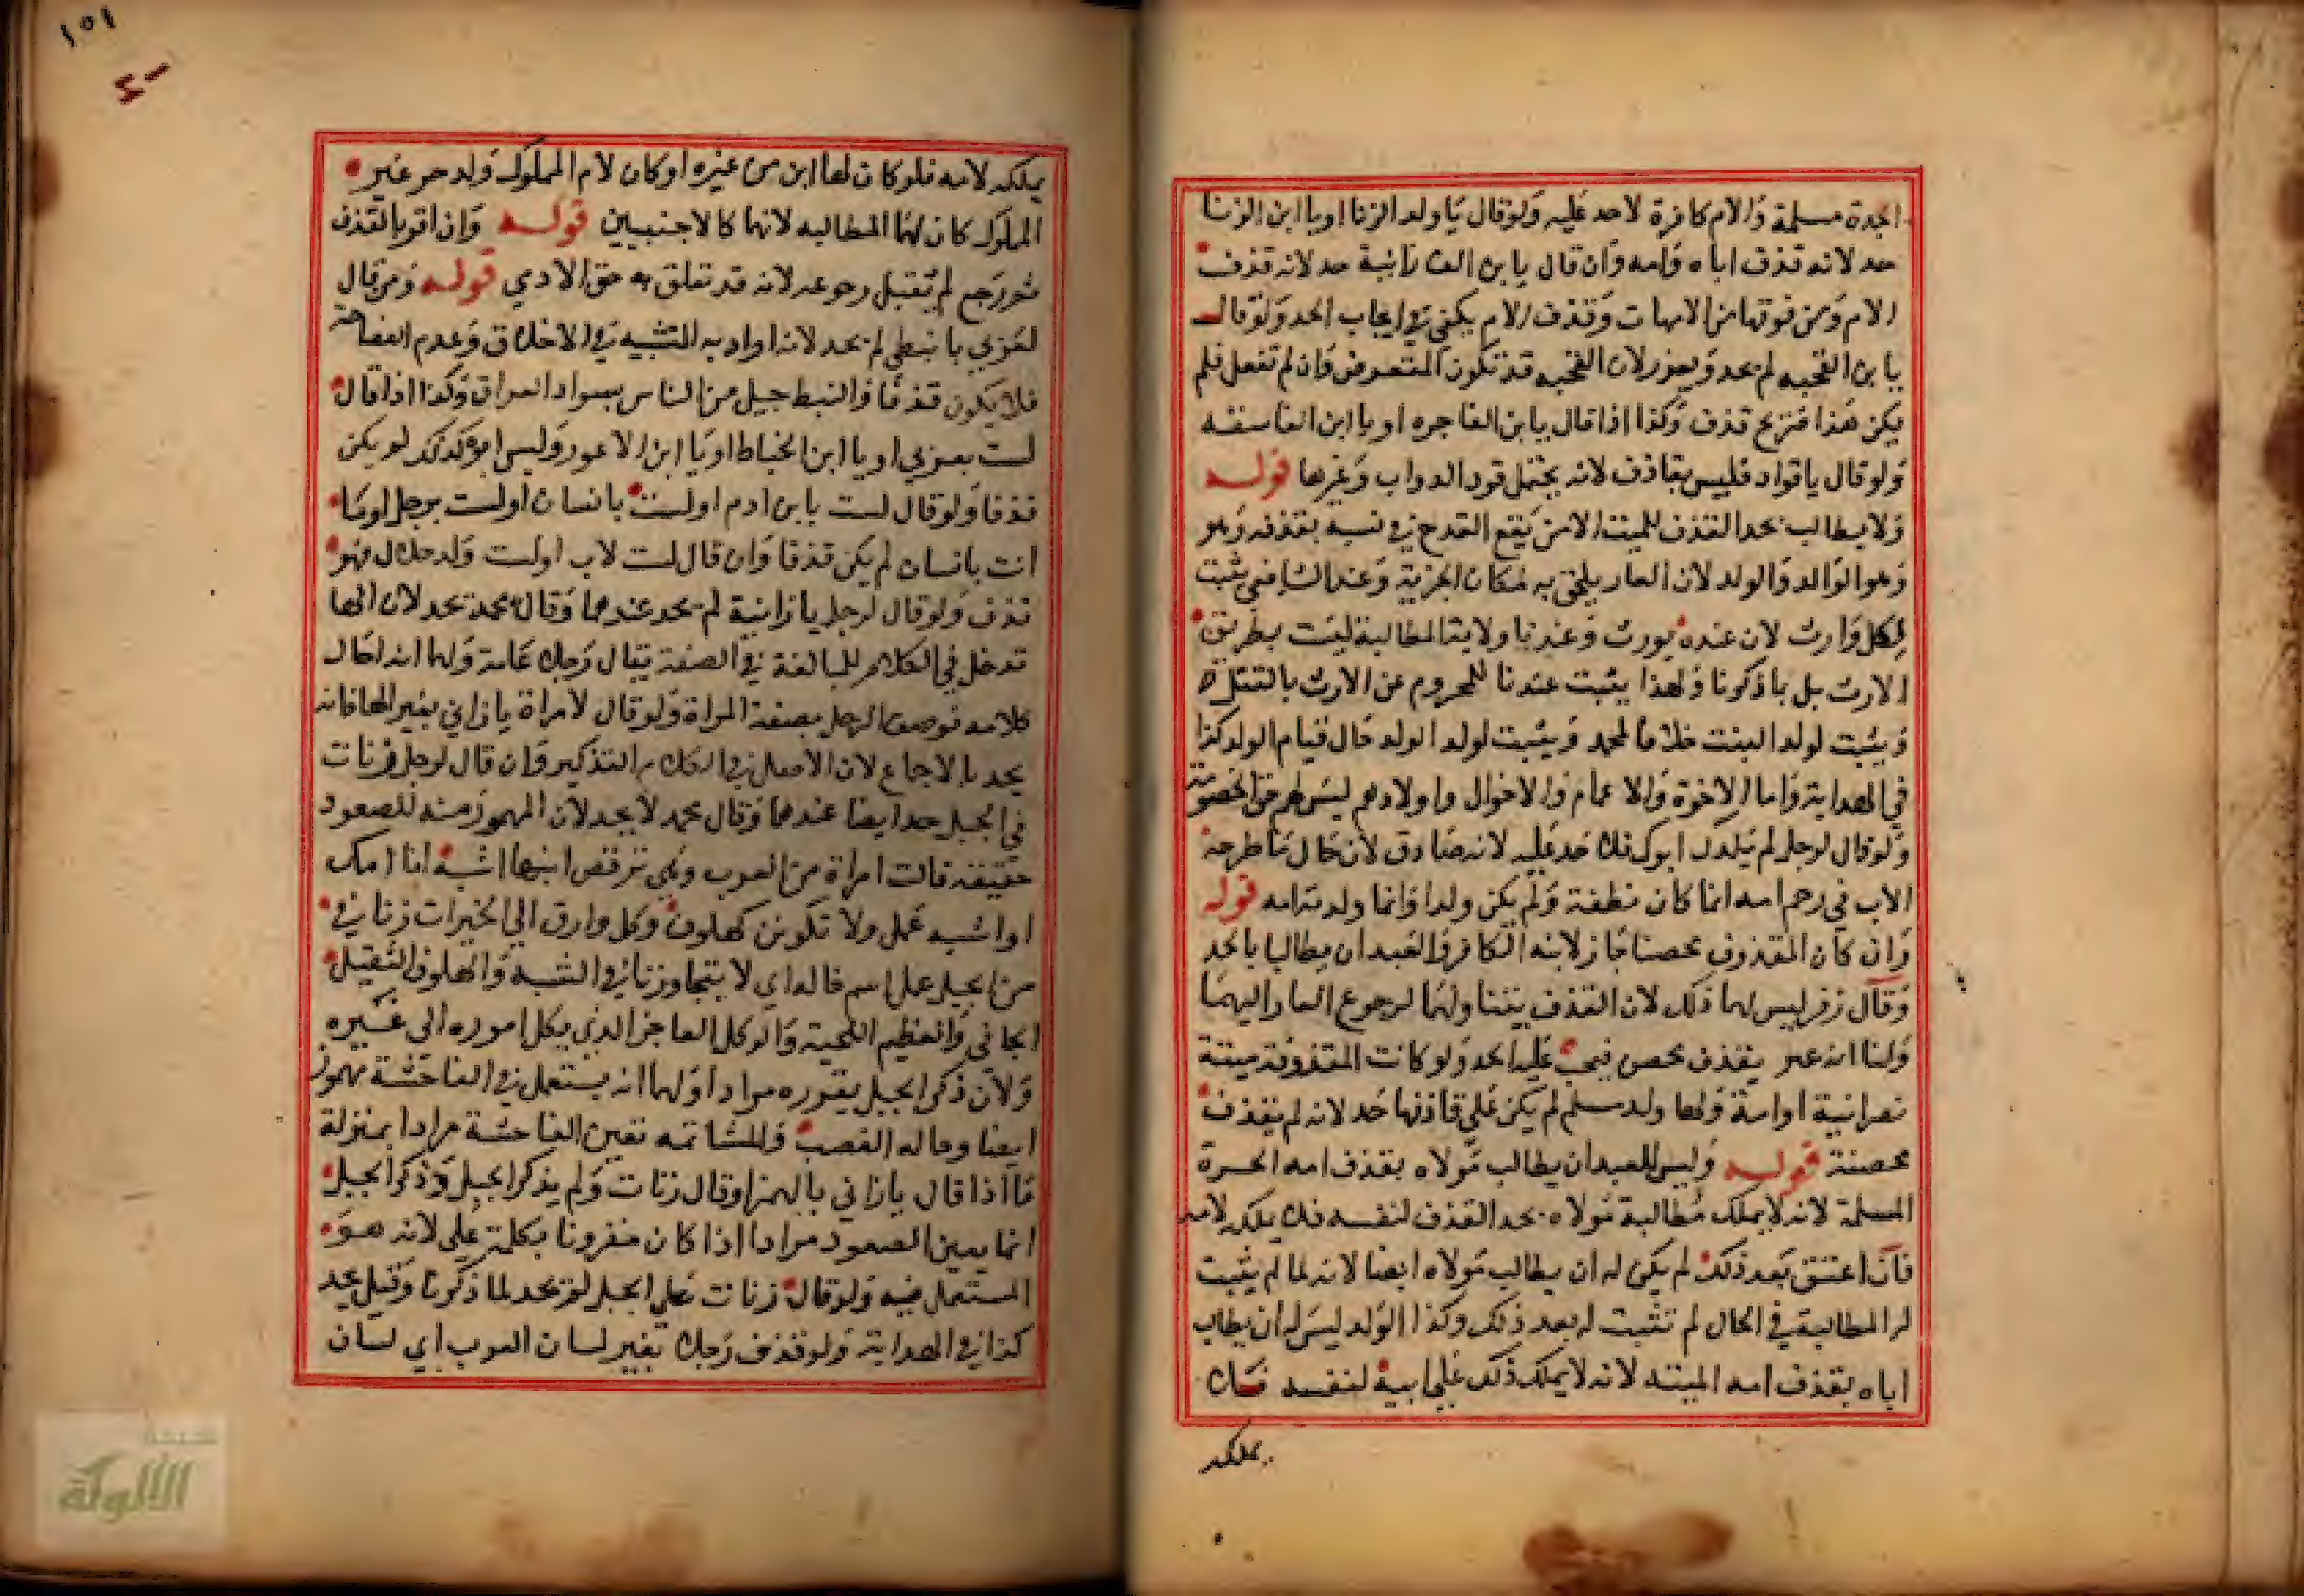 الجدة مسلمة والام كافرة لا حد عليه ولو قال يا ولد الزنا او يا ابن الزنا
حد لانه قذف اباه وامه وان قال يا بن الف زانية حد لانه قذف
الام ومن فوقها من الامهات وقذف الام يكفي في ايجاب الحد ولو قال
يا بن القحبه لم يحد ويعزر لان القحبه قد تكون المتعرض وان لم تفعل فلم
يكن هذا صريح قذف وكذا اذا قال يا بن الفاجره او يا ابن الفاسقه
ولو قال يا قواد فليس بقاذف لانه يحتمل قود الدواب وغيرها قوله
ولا يطالب بحد القذف للميت الا من يقع القدح في نسبه بقذفه وهو
وهو الوالد والولد لان العار يلحق به لمكان الجزية وعند الشافعي يثبت
لكل وارث لان عنده يورث وعندنا ولاية المطالبة ليست بطريق
الارث بل بما ذكرنا ولهذا يثبت عندنا للمحروم عن الارث بالقتل
ويثبت لولد البنت خلافا لمحمد ويثبت لولد الولد حال قيام الولد كذا
في الهداية واما الاخوة والاعمام والاخوال واولادهم ليس لهم حق الخصومة
ولو قال لرجل لم يلدك ابوك فلا حد عليه لانه صادق لان حال ما طرحه
الاب في رحم امه انما كان نطفة ولم يكن ولدا وانما ولدته امه قوله
وان كان المقذوف محصنا جاز لابنه الكافر والعبد ان يطالبا بالحد
وقال زفر ليس لهما ذلك لان القذف يتناولهما لرجوع العار اليهما
ولنا انه عير بقذف محصن فيجب عليه الحد ولو كانت المقذوفة ميتة
نصرانية او امة ولها ولد مسلم لم يكن على قاذفها حد لانه لم يقذف
محصنة قوله وليس للعبد ان يطالب مولاه بقذف امه الحرة
المسلمة لانه لا يملك مطالبة مولاه بحد القذف لنفسه فلا يملكه لامه
فان اعتق بعد ذلك لم يكن له ان يطالب مولاه ايضا لانه لما لم يثبت
له المطالبة في الحال لم تثبت له بعد ذلك وكذا الولد ليس له ان يطالب
اباه بقذف امه الميته لانه لا يملك ذلك على ابيه لنفسه فلا
يملكه
١٥١
يملكه لامه فلو كان لها ابن من غيره او كان لام المملوك ولد حر غير
المملوك كان لهما المطالبه لانهما كالاجنبيين قوله وان اقر بالقذف
ثم رجع لم يقبل رجوعه لانه قد تعلق به حق الادمي قوله ومن قال
لعربي يا نبطي لم يحد لانه اراد به التشبيه في الاخلاق وعدم الفصاحة
فلا يكون قذفا والنبط جيل من الناس بسواد العراق وكذا اذا قال
لست بعربي او يا ابن الخياط او يا ابن الاعور وليس ابوه كذلك لم يكن
قذفا ولو قال لست يا بن ادم او لست بانسان او لست برجل او ما
انت بانسان لم يكن قذفا وان قال لست لاب او لست ولد حلال فهو
قذف ولو قال لرجل يا زانية لم يحد عندهما وقال محمد يحد لان الها
تدخل في الكلام للمبالغة في الصفة يقال رجل علامة ولهما انه احال
كلامه فوصف الرجل بصفة المراة ولو قال لامراة يا زاني بغير الها فانه
يحد بالاجماع لان الاصل في الكلام التذكير وان قال لرجل زنات
في الجبل حد ايضا عندهما وقال محمد لا يحد لان المهموز منه للصعود
حقيقة قالت امراة من العرب وهي ترقص ابنها اشبه انا امك
او اشبه عمل ولا تكونن كهلوف وكل وارق الى الخيرات زنا في
من الجبل عمل اسم خاله اي لا يتجاوزنا في الشبه والهلوف الثقيل
الجافي والعظيم اللحية والوكل العاجز الذي يكل اموره الى غيره
ولان ذكر الجبل يقرره مرادا ولهما انه يستعمل في الفاحشة مهموز
ايضا وحاله الغضب والمشاتمه تعين الفاحشة مرادا بمنزلة
ما اذا قال يا زاني بالهمز او قال زنات ولم يذكر الجبل وذكر الجبل
انما يعين الصعود مرادا اذا كان مقرونا بكلمة على لانه هو
المستعمل فيه ولو قال زنات على الجبل لم يحد لما ذكرنا وقيل يحد
كذا في الهداية ولو قذف رجل بغير لسان العرب اي لسان
شبكة
الألوكة